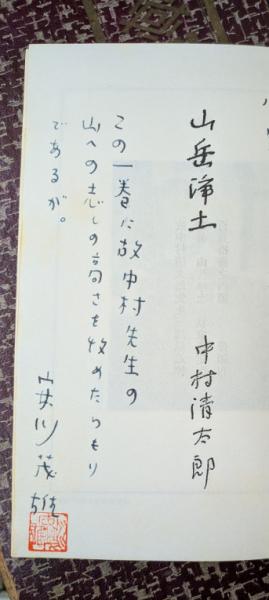 山岳浄土
中村清太郎
この一巻に故中村先生の
山への志しの高さを收めたつもり
であるが。
安川茂雄